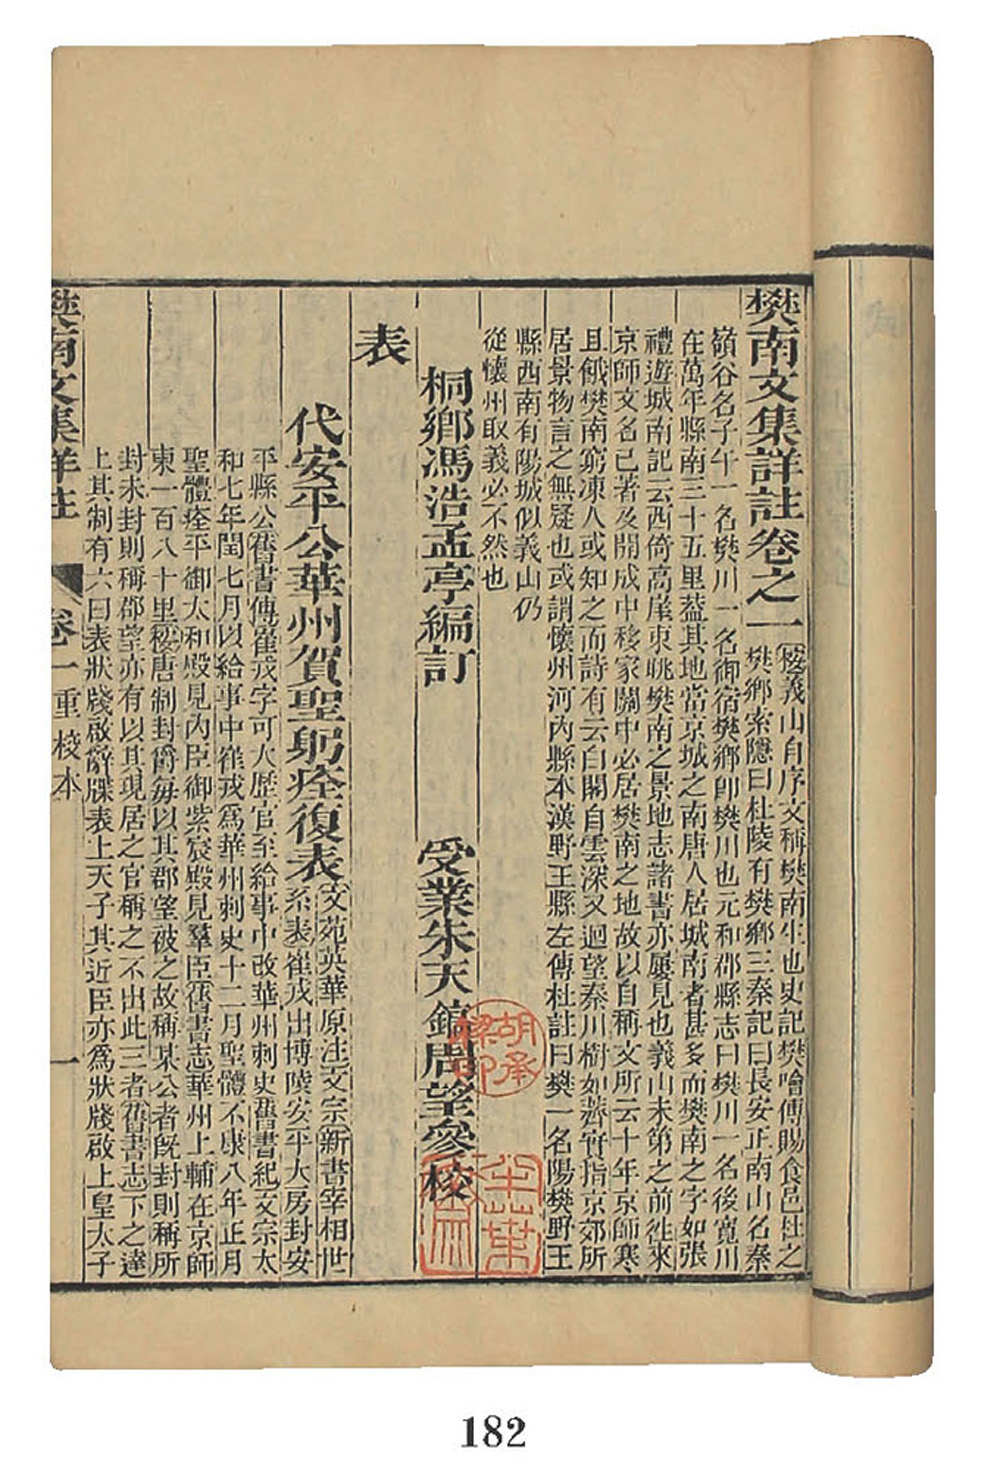 樊南文集詳註卷之一
按義山自序文稱樊南生也史記樊噲傳賜食邑杜之
樊鄉索隱曰杜陵有樊鄉三秦記曰長安正南山名秦
嶺谷名子午一名樊川一名御宿樊鄉卽樊川也元和郡縣志曰樊川一名後寬川
在萬年縣南三十五里葢其地當京城之南唐人居城南者甚多而樊南之字如張
禮遊城南記云西倚高崖東眺樊南之景地志諸書亦屢見也義山未第之前往來
京師文名已著及開成中移家關中必居樊南之地故以自稱文所云十年京師寒
且餓樊南窮凍人或知之而詩有云白閣自雲深又迴望秦川樹如薺實指京郊所
居景物言之無疑也或謂懷州河內縣本漢野王縣左傳杜註曰樊一名陽樊野王
縣西南有陽城似義山仍
從懷州取義必不然也
桐鄉馮浩孟亭編訂
受業朱天鎬周望參校
表
代安平公華州賀聖躬痊復表
文苑英華原注文宗新書宰相世
系表崔戎出博陵安平大房封安
平縣公舊書傳崔戎字可大歷官至給事中改華州刺史舊書紀文宗太
和七年閏七月以給事中崔戎爲華州刺史十二月聖體不康八年正月
聖體痊平御太和殿見內臣御紫宸殿見羣臣舊書志華州上輔在京師
東一百八十里按唐制封爵每以其郡望被之故稱某公者旣封則稱所
封未封則稱郡望亦有以其現居之官稱之不出此三者舊書志下之達
上其制有六曰表狀牋啟辭牒表上天子其近臣亦爲狀牋啟上皇太子
樊南文集詳註
卷一
重校本
一
胡承
梁印
182